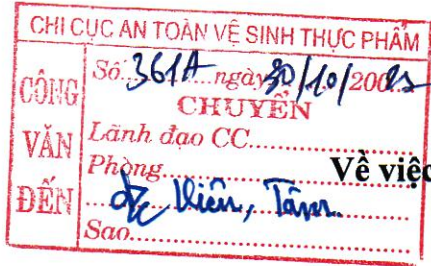 CHI CỤC AN TOÀN VỆ SINH THỰC PHẨM
CÔNG VĂN ĐẾN
Số 361A ngày 30/10/200
CHUYỂN
Lãnh đạo CC
Phòng
Về việc
Viên, Tâm.
Sao